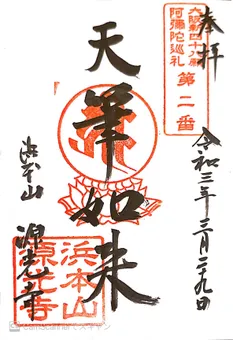 奉拝
大阪新四十八願
阿彌陀巡礼
第二番
令和三年三月二十九日
天筆如来
浜本山
源光寺
浜本山
源光寺